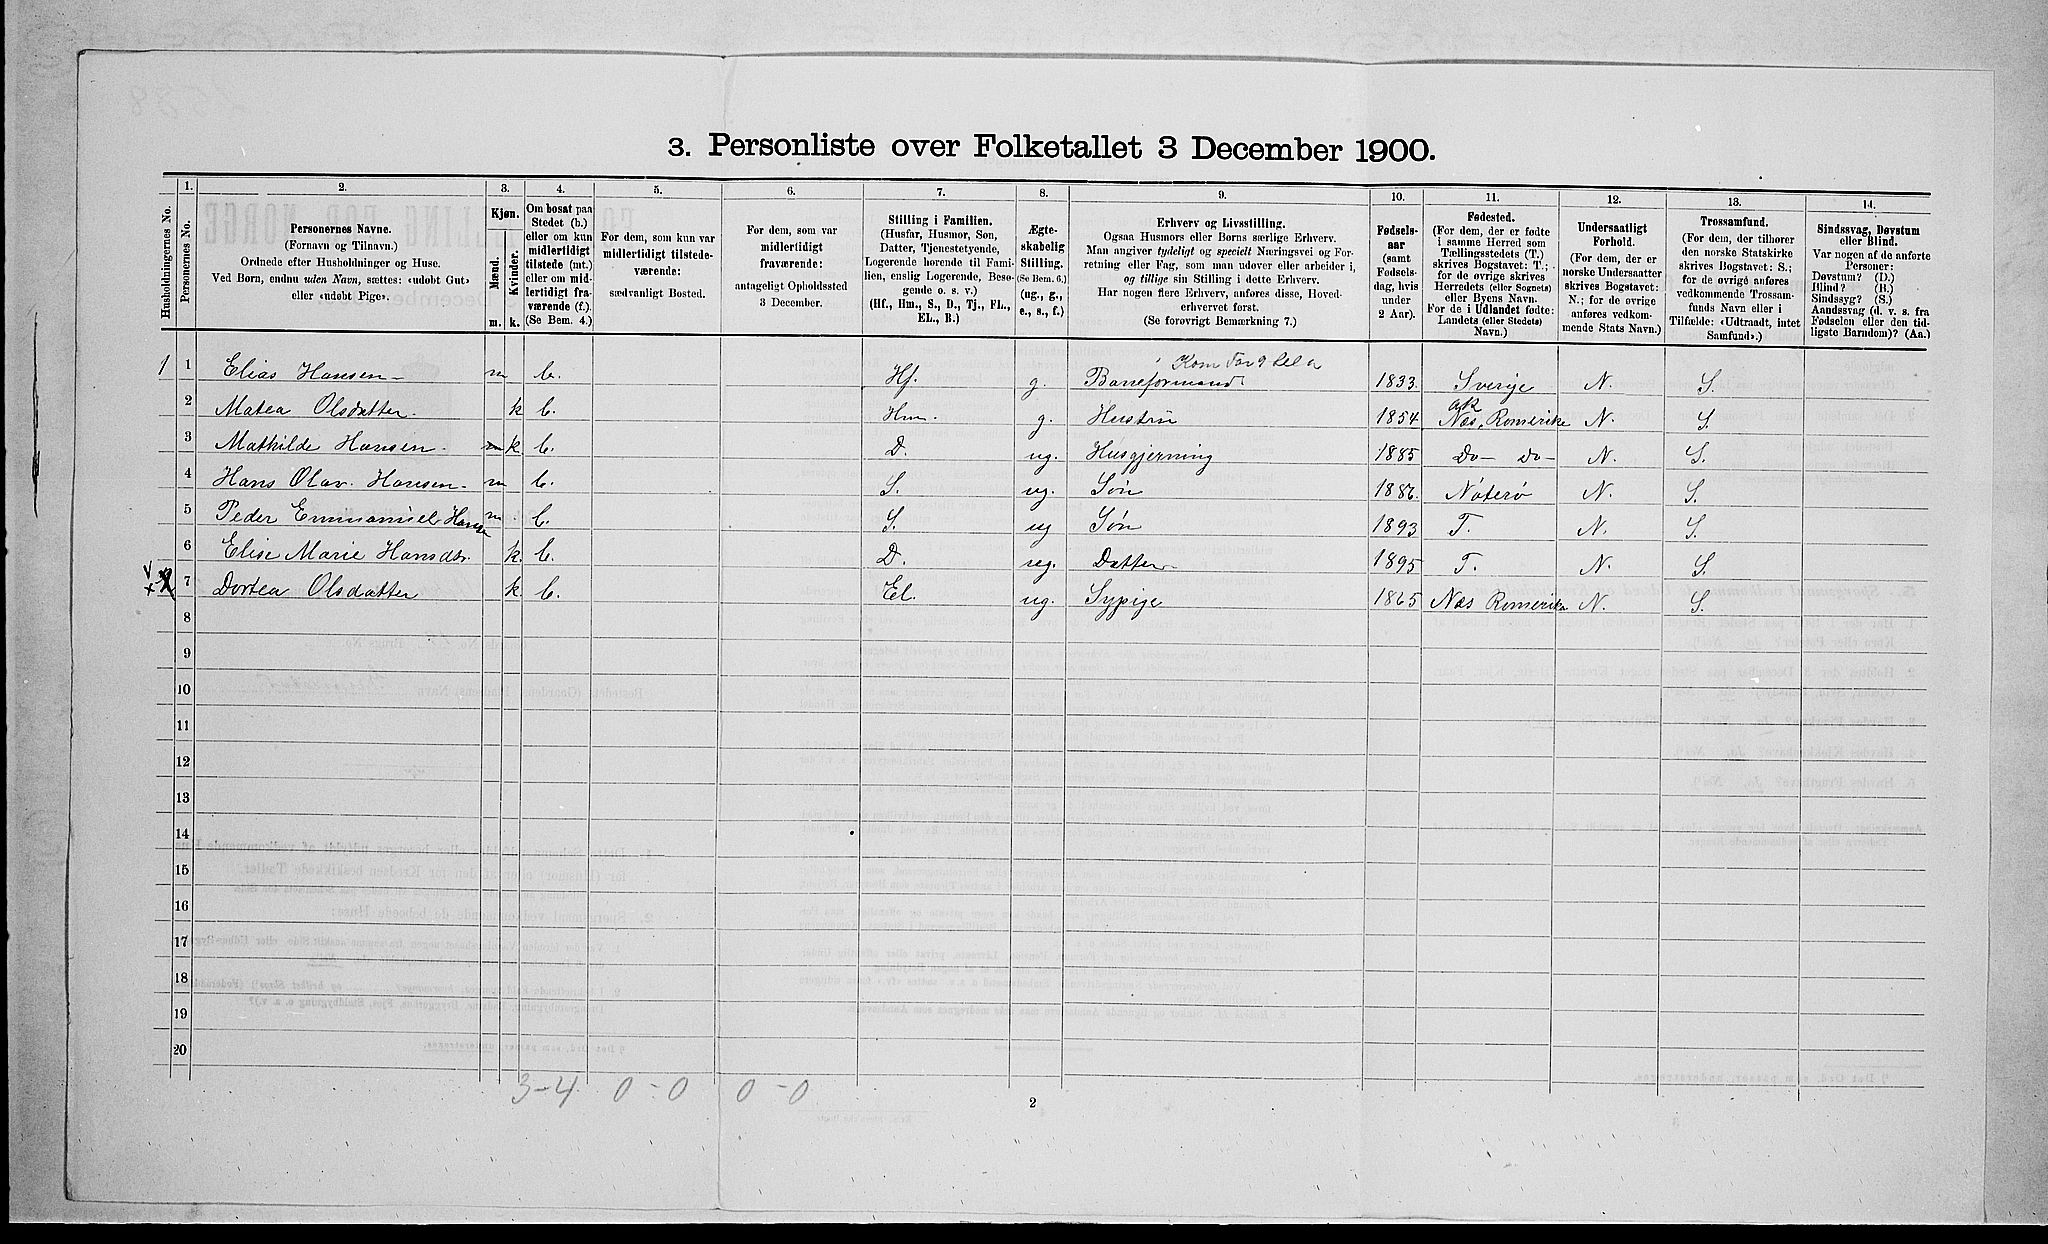 3. Personliste over Folketallet 3 December 1900.
1. 2. 3. 4. 5. 6. 7. 8. 9. 10. 11. 12. 13. 14.
Husholdningernes No.
Personernes No.
Personernes Navne.
(Fornavn og Tilnavn.)
Ordnede efter Husholdninger og Huse.
Ved Børn, endnu uden Navn, sættes: «udøbt Gut»
eller «udøbt Pige».
Kjøn.
Mænd.
Kvinder.
m. k.
Om bosat paa
Stedet (b.)
eller om kun
midlertidigt
tilstede (mt.)
eller om mid-
lertidigt fra-
værende (f.)
(Se Bem. 4.)
For dem, som kun var
midlertidigt tilstede-
værende:
sædvanligt Bosted.
For dem, som var
midlertidigt
fraværende:
antageligt Opholdssted
3 December.
Stilling i Familien.
(Husfar, Husmor, Søn,
Datter, Tjenestetyende,
Logerende hørende til Fami-
lien, enslig Logerende, Besø-
gende o. s. v.)
(Hf., Hm., S., D., Tj., FL.,
EL., B.)
Ægte-
skabelig
Stilling.
(Se Bem. 6.)
(ug., g.,
e., s., f.)
Erhverv og Livsstilling.
Ogsaa Husmors eller Børns særlige Erhverv.
Man angiver tydeligt og specielt Næringsvei og For-
retning eller Fag, som man udøver eller arbeider i,
og tillige sin Stilling i dette Erhverv.
Har nogen flere Erhverv, anføres disse, Hoved-
erhvervet først.
(Se forøvrigt Bemærkning 7.)
Fødsels-
aar
(samt
Fødsels-
dag, hvis
under
2 Aar).
Fødested.
(For dem, der er fødte
i samme Herred som
Tællingsstedets (T.)
skrives Bogstavet: T.;
for de øvrige skrives
Herredets (eller Sognets)
eller Byens Navn.
For de i Udlandet fødte:
Landets (eller Stedets)
Navn.)
Undersaatligt
Forhold.
(For dem, der er
norske Undersaatter
skrives Bogstavet:
N.; for de øvrige
anføres vedkom-
mende Stats Navn.)
Trossamfund.
(For dem, der tilhører
den norske Statskirke
skrives Bogstavet: S.;
for de øvrige anføres
vedkommende Trossam-
funds Navn eller i
Tilfælde: «Udtraadt, intet
Samfund».)
Sindssvag, Døvstum
eller Blind.
Var nogen af de anførte
Personer:
Døvstum? (D.)
Blind? (B.)
Sindssyg? (S.)
Aandssvag (d. v. s. fra
Fødselen eller den tid-
ligste Barndom)? (Aa.)
1 1 Elias Hansen m b. Hf. g. Baneformand 1833. Sverige N. S.
2 Matea Olsdatter. k b. Hm. g. Hustru 1854 Næs, Romerike N. S.
3 Mathilde Hansen. k b. D. ug. Husgjerning 1885 Do- do- N. S.
4 Hans Olav Hansen m b. S. ug. Søn 1886. Nøterø N. S.
5 Peder Emmanuel Hanse m b. S. ug Søn 1893 T. N. S.
6 Elise Marie Hansdtr. k. b. D. ug. Datter 1895 T. N. S.
7 Dortea Olsdatter k b. El. ug. Sypige 1865 Næs Romerike N. S.
8
9
10
11
12
13
14
15
16
17
18
19
20
3-4 0-0 0-0
2